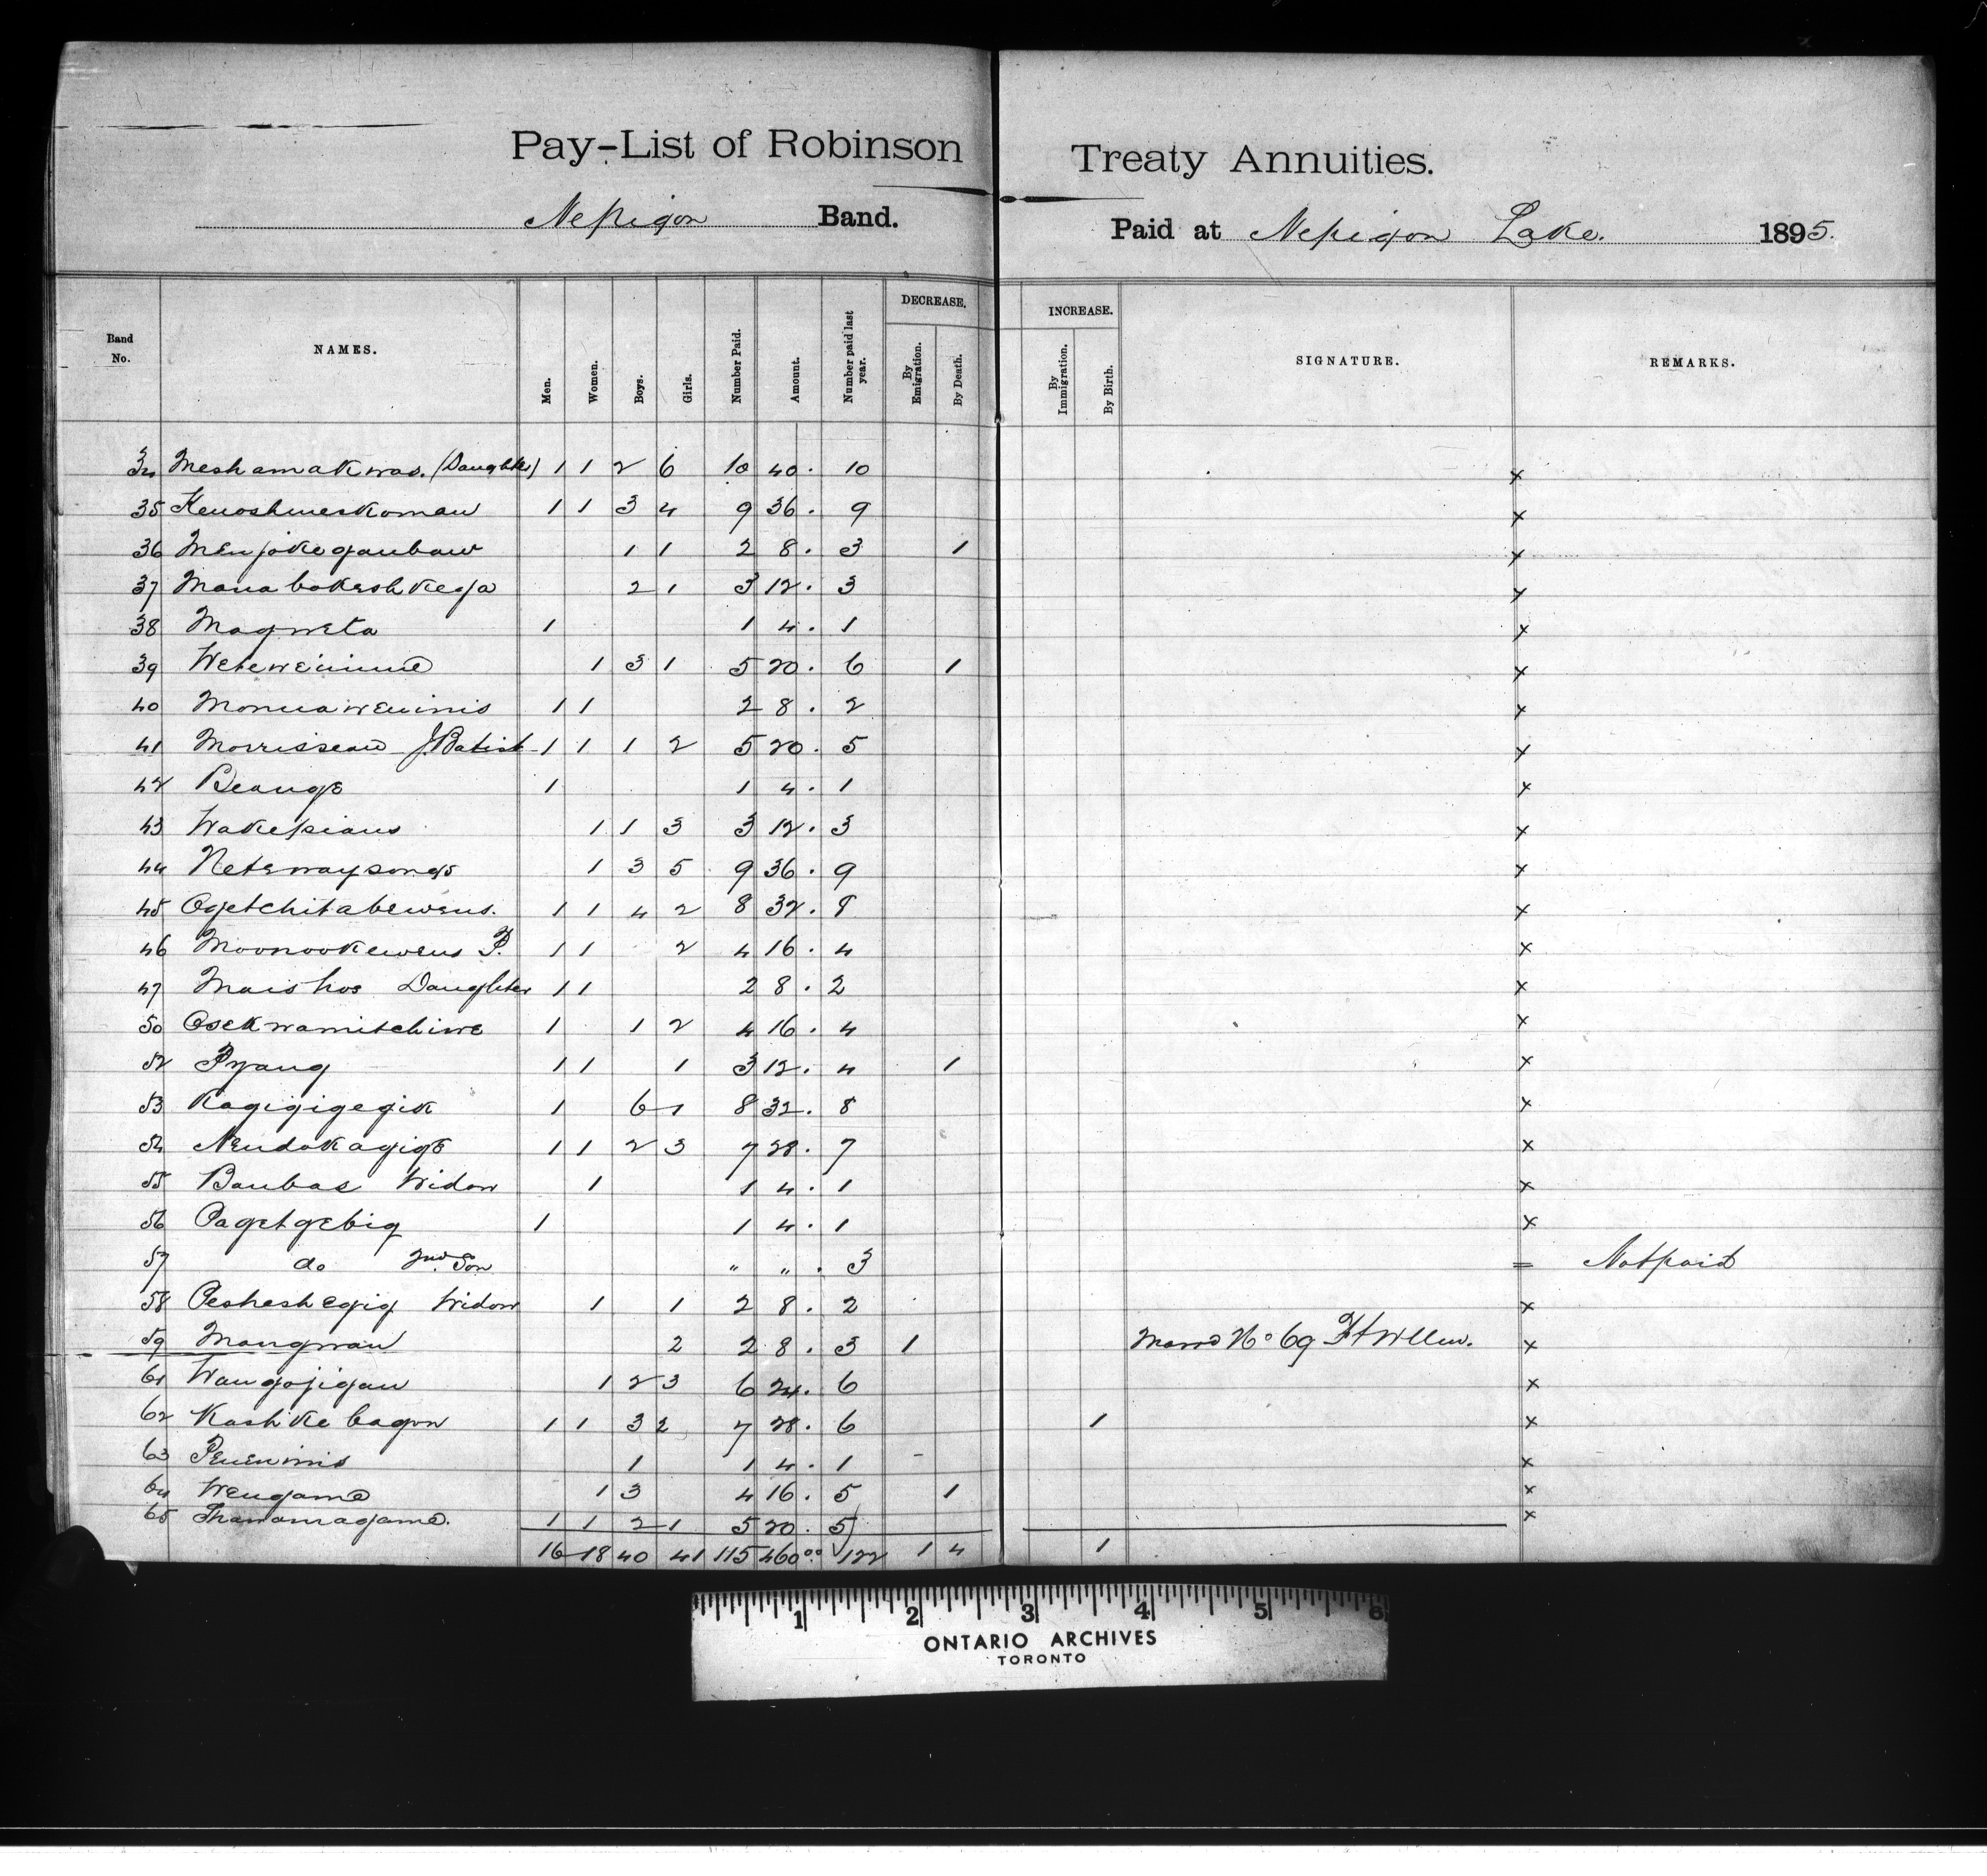 Pay-List of Robinson Treaty Annuities.
Nepigon Band. Paid at Nepigon Lake. 1895.
Band No. NAMES. Men. Women. Boys. Girls. Number Paid. Amount. Number paid last year. DECREASE. By Emigration. By Death. INCREASE. By Immigration. By Birth. SIGNATURE. REMARKS.
34 Meshamakwas. (Daughter) 1 1 2 6 10 40. 10 x
35 Kenoshmeskoman 1 1 3 4 9 36. 9 x
36 Menjokegaubaw 1 1 2 8. 3 1 x
37 Manabokeshkega 2 1 3 12. 3 x
38 Magweta 1 1 4. 1 x
39 1 3 1 5 20. 6 1 x
40 Monnaweninis 1 1 2 8. 2 x
41 Morrisseau J Batist 1 1 1 2 5 20. 5 x
42 Beange 1 1 4. 1 x
43 Wakepians 1 1 3 3 12. 3 x
44 Netawaysongs 1 3 5 9 36. 9 x
45 Ogetchitabewens. 1 1 4 2 8 32. 8 x
46 Moonookewens P. 1 1 2 4 16. 4 x
47 Maishos Daughter 1 1 2 8. 2 x
50 Osekwamitchiwe 1 1 2 4 16. 4 x
52 Pyang 1 1 1 3 12. 4 1 x
53 Kagigigegik 1 6 1 8 32. 8 x
54 Nendokagige 1 1 2 3 7 28. 7 x
55 Baubas Widow 1 1 4. 1 x
56 Pagetgebig 1 1 4. 1 x
57 do 2nd Son " " . 3 = Not paid
58 Pesheshegig Widow 1 1 2 8. 2 x
59 Mangwan 2 2 8. 3 1 No 69 Ft Wllm. x
61 Waugojigan 1 2 3 6 24. 6 x
62 Kashkebagon 1 1 3 2 7 28. 6 1 x
63 Penenimis 1 1 4. 1 - x
64 Wengame 1 3 4 16. 5 1 x
65 Shawanagame. 1 1 2 1 5 20. 5 x
16 18 40 41 115 460.00 122 1 4 1
1 2 3 4 5 6
ONTARIO ARCHIVES
TORONTO